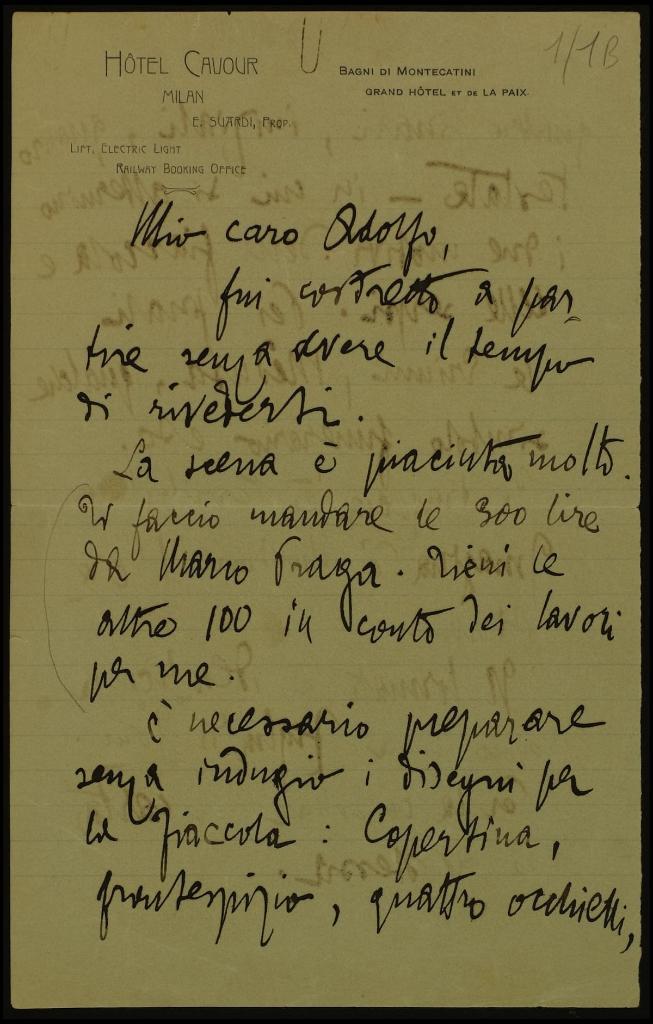 1/1B
HÔTEL CAVOUR
MILAN
E. SUARDI, PROP.
LIFT, ELECTRIC LIGHT
RAILWAY BOOKING OFFICE
BAGNI DI MONTECATINI
GRAND HÔTEL ET DE LA PAIX.
Mio caro Adolfo,
fui costretto a par-
tire senza avere il tempo
di rivederti.
La scena è piaciuta molto.
Ti faccio mandare le 300 lire
da Marco Praga. Tieni le
altre 100 in conto dei lavori
per me.
È necessario preparare
senza indugio i disegni per
la Fiaccola: Copertina,
frontespizio, quattro occhietti,